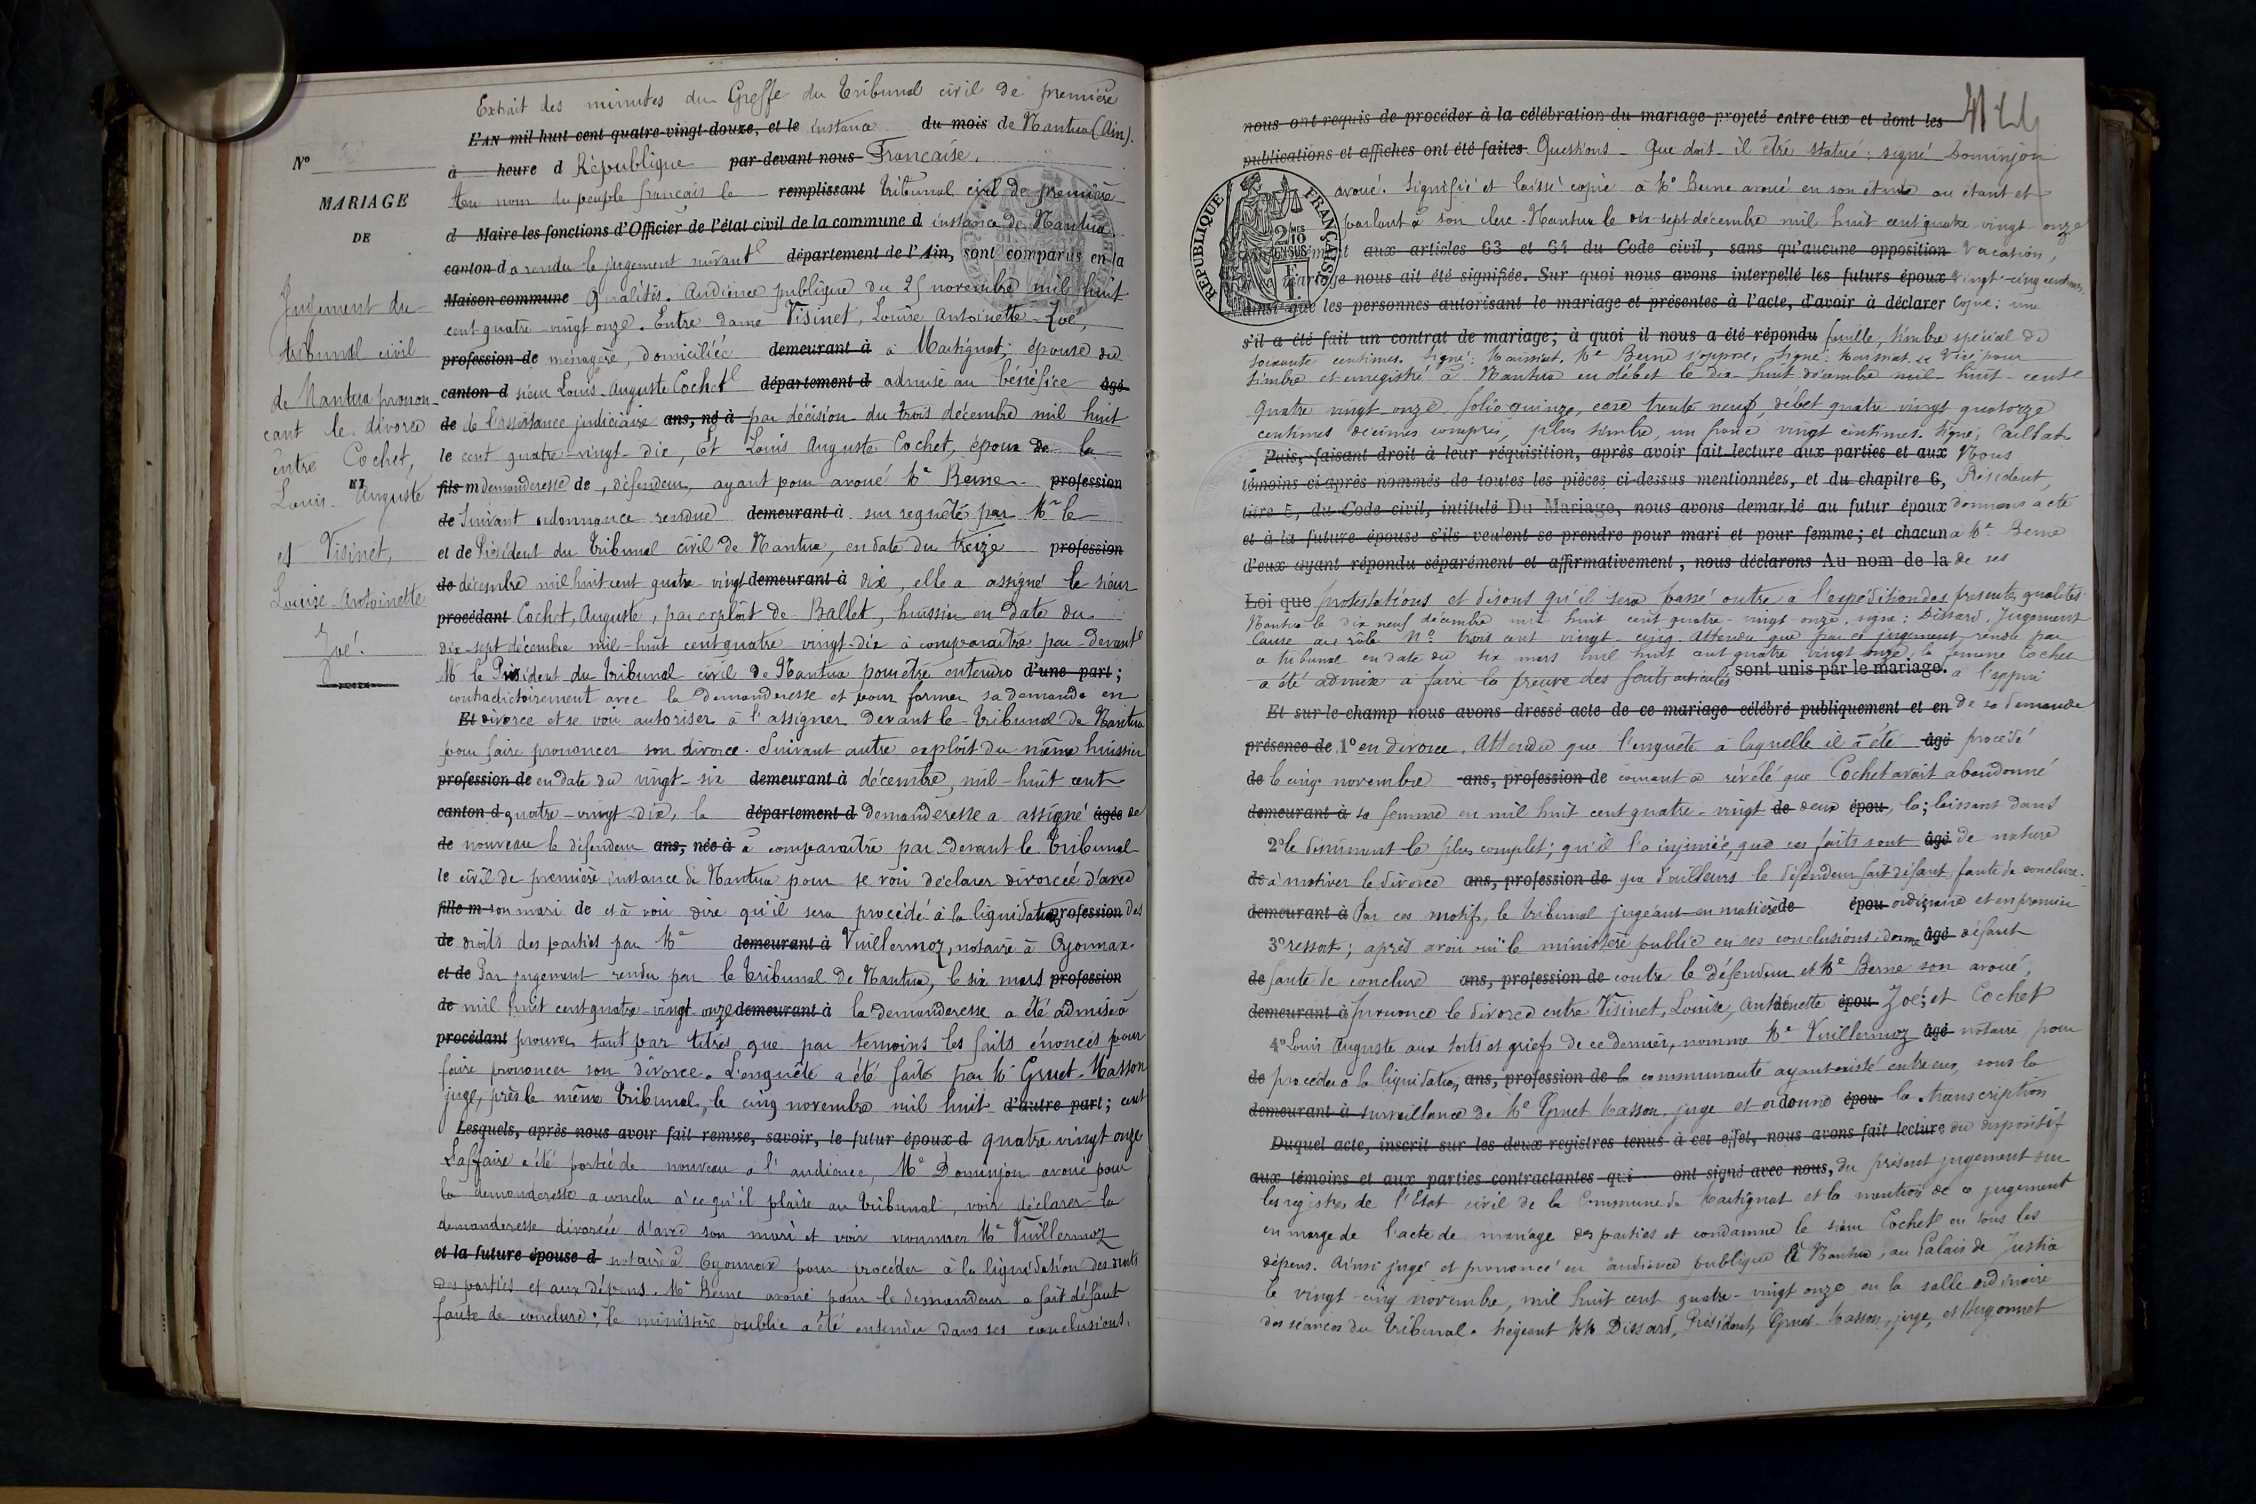 Extrait des minutes du Greffe du Tribunal civil de première
L'AN mil huit cent quatre-vingt-douze, et le instance du mois de Nantua (Ain).
à heure d République par-devant nous Française.
Au nom du peuple français le remplissant tribunal civil de première
d Maire les fonctions d'Officier de l'état civil de la commune d instance de Nantua
canton d a rendu le jugement suivant département de l'Ain, sont comparus en la
Maison commune Qualités. Audience publique du 25 novembre mil huit
cent quatre-vingt onze. Entre dame Visinet, Louise Antoinette-Zoé,
profession de ménagère, domiciliée demeurant à à Martignat, épouse du
canton d sieur Louis-Auguste Cochet département d admise au bénéfice âgé
de de l'assistance judiciaire ans, né à par décision du trois décembre mil huit
le cent quatre-vingt-dix, Et Louis Auguste Cochet, époux de la
fils m demanderesse de, défendeur, ayant pour avoué Me Berne profession
de Suivant ordonnance rendue demeurant à sur requête par Mr le
et de Président du Tribunal civil de Nantua, en date du treize profession
de décembre mil huit cent quatre-vingt demeurant à dix, elle a assigné le sieur
procédant Cochet, Auguste, par exploit de Ballet, huissier en date du
dix-sept décembre mil-huit cent quatre vingt-dix à comparaître par devant
M le Président du tribunal civil de Nantua pour être entendu d'une part;
contradictoirement avec la demanderesse et pour former sa demande en
Et divorce et se voir autoriser à l'assigner devant le Tribunal de Nantua
pour faire prononcer son divorce. Suivant autre exploit du même huissier
profession de en date du vingt-six demeurant à décembre, mil-huit cent
canton d quatre-vingt-dix, la département d demanderesse a assigné âgée de
de nouveau le défendeur ans, née à à comparaître par devant le Tribunal
le civil de première instance de Nantua pour se voir déclarer divorcée d'avec
fille m son mari de et à voir dire qu'il sera procédé à la liquidation profession des
de droits des parties par Me demeurant à Vuillermoz, notaire à Oyonnax.
et de Par jugement rendu par le Tribunal de Nantua, le six mars profession
de mil huit cent quatre-vingt-onze demeurant à la demanderesse a été admise à
procédant prouver tant par titres que par témoins les faits énoncés pour
faire prononcer son divorce. L'enquête a été faite par Mr Gruet-Masson
juge, près le même Tribunal, le cinq novembre mil huit d'autre part; cent
Lesquels, après nous avoir fait remise, savoir, le futur époux d quatre vingt onze
L'affaire a été portée de nouveau à l'audience, Me Dominjon avoué pour
la demanderesse a conclu à ce qu'il plaise au tribunal, voir déclarer la
demanderesse divorcée d'avec son mari et voir nommer Me Vuillermoz
et la future épouse d notaire à Oyonnax pour procéder à la liquidation des droits
des parties et aux dépens. Me Berne avoué pour le demandeur a fait défaut
faute de conclure; le ministère public a été entendu dans ses conclusions.
No
MARIAGE
DE
Jugement du
tribunal civil
de Nantua pronon-
çant le divorce
entre Cochet,
ET
Louis-Auguste
et Visinet,
Louise-Antoinette
Zoé.
nous ont requis de procéder à la célébration du mariage projeté entre eux et dont les
publications et affiches ont été faites Questions - Que doit-il être statué: signé Dominjon
avoué. Signifié et laissé copie à Me Berne avoué en son étude au étant et
parlant à son clerc. Nantua le dix-sept décembre mil huit cent quatre vingt-onze
aux articles 63 et 64 du Code civil, sans qu'aucune opposition Vacation,
mariage nous ait été signifiée. Sur quoi nous avons interpellé les futurs époux vingt-cinq centimes,
ainsi que les personnes autorisant le mariage et présentes à l'acte, d'avoir à déclarer Copie: une
RÉPUBLIQUE FRANÇAISE
2 MES
10
EN SUS
1 F
s'il a été fait un contrat de mariage; à quoi il nous a été répondu feuille, timbre spécial de
soixante centimes. Signé: Maissiat. Me Berne s'oppose, Signé: Maissiat. Visé pour
timbre et enregistré à Nantua en débet le dix-huit décembre mil-huit-cent
quatre vingt onze folio quinze, case trente neuf, débet quatre vingt quatorze
centimes décimes compris, plus timbre, un franc vingt centimes. Signé,
Puis, faisant droit à leur réquisition, après avoir fait lecture aux parties et aux Nous
témoins ci-après nommés de toutes les pièces ci-dessus mentionnées, et du chapitre 6, Président,
titre 5, du Code civil, intitulé Du Mariage, nous avons demandé au futur époux donnons acte
et à la future épouse s'ils veulent se prendre pour mari et pour femme; et chacun à Me Berne
d'eux ayant répondu séparément et affirmativement, nous déclarons Au nom de la de ses
Loi que protestations et disons qu'il sera passé outre à l'expédition des présentes qualités
Nantua le dix neuf décembre mil huit cent quatre-vingt-onze. signé: Dissard. Jugement
Cause au rôle No trois cent vingt-cinq. Attendu que par ce jugement rendu par
ce tribunal en date du six mars mil huit cent quatre vingt onze, la femme Cochet
a été admise à faire la preuve des faits articulés sont unis par le mariage. à l'appui
Et sur-le-champ nous avons dressé acte de ce mariage célébré publiquement et en de sa demande
présence de 1o en divorce. Attendu que l'enquête à laquelle il a été âgé procédé
de le cinq novembre ans, profession de courant a révélé que Cochet avait abandonné
demeurant à sa femme en mil huit cent quatre-vingt de deux épou la; laissant dans
2o le dénûment le plus complet; qu'il l'a injuriée, que ces faits sont âgé de nature
de à motiver le divorce ans, profession de que d'ailleurs le défendeur fait défaut faute de conclure.
demeurant à Par ces motifs, le tribunal jugeant en matière de épou ordinaire et en premier
3o ressort; après avoir ouï le ministère public en ses conclusions, donne âgé défaut
de faute de conclure ans, profession de contre le défendeur et Me Berne son avoué,
demeurant à prononce le divorce entre Visinet, Louise, Antoinette épou Zoé, et Cochet
4o Louis Auguste aux torts et griefs de ce dernier, nomme Me Vuillermoz âgé notaire pour
de procéder à la liquidation ans, profession de la communauté ayant existé entre eux, sous la
demeurant à surveillance de Me Gruet Masson juge et ordonne épou la transcription
Duquel acte, inscrit sur les deux registres tenus à cet effet, nous avons fait lecture du dispositif
aux témoins et aux parties contractantes qui ont signé avec nous, du présent jugement sur
les registres de l'Etat civil de la Commune de Martignat et la mention de ce jugement
en marge de l'acte de mariage des parties et condamne le sieur Cochet en tous les
dépens. Ainsi jugé et prononcé en audience publique à Nantua, au Palais de Justice
le vingt-cinq novembre, mil huit cent quatre-vingt onze en la salle ordinaire
des séances du Tribunal. Siégeant MM Dissard, Président, Gruet-Masson, juge, et Hugonnet